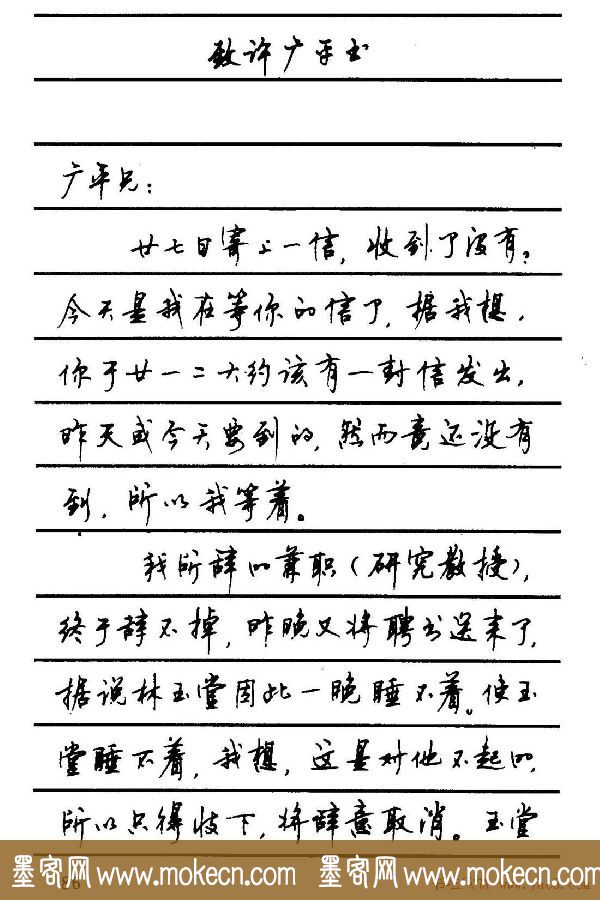 致许广平书
广平兄：
廿七日寄上一信，收到了没有？
今天是我在等你的信了，据我想，
你于廿一二大约该有一封信发出，
昨天或今天要到的，然而竟还没有
到，所以我等着。
我所辞的兼职（研究教授），
终于辞不掉，昨晚又将聘书送来了，
据说林玉堂因此一晚睡不着。使玉
堂睡不着，我想，这是对他不起的，
所以只得收下，将辞意取消。玉堂
墨客网www.mokecn.com 墨客网www.mokecn.com
86